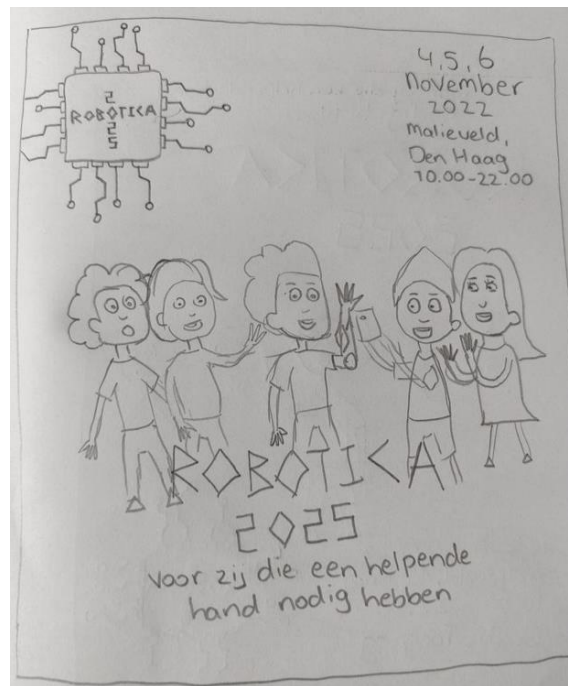 2
ROBOTICA
2
5
4, 5, 6
november
2022
malieveld,
Den Haag
10.00-22.00
ROBOTICA
2025
voor zij die een helpende
hand nodig hebben